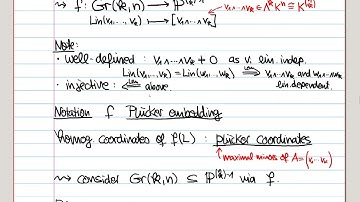 ⇝ f: Gr(k,n) → ℙ^{(n k)-1} v₁∧...∧v_k ∈ Λ^k K^n ≅ K^{(n k)}
Lin(v₁,...,v_k) ↦ [v₁∧...∧v_k]
Note:
• well-defined: v₁∧...∧v_k ≠ 0 as v_i lin. indep.
• injective: ⇐ above. Lin(v₁,...,v_k) = Lin(w₁,...,w_k) ⇔ v₁∧...∧v_k and w₁∧...∧w_k lin. dependent.
Notation f Plücker embedding
Homog. coordinates of f(L): plücker coordinates
maximal minors of A = (v₁...v_k)
⇝ consider Gr(k,n) ⊆ ℙ^{(n k)-1} via f.